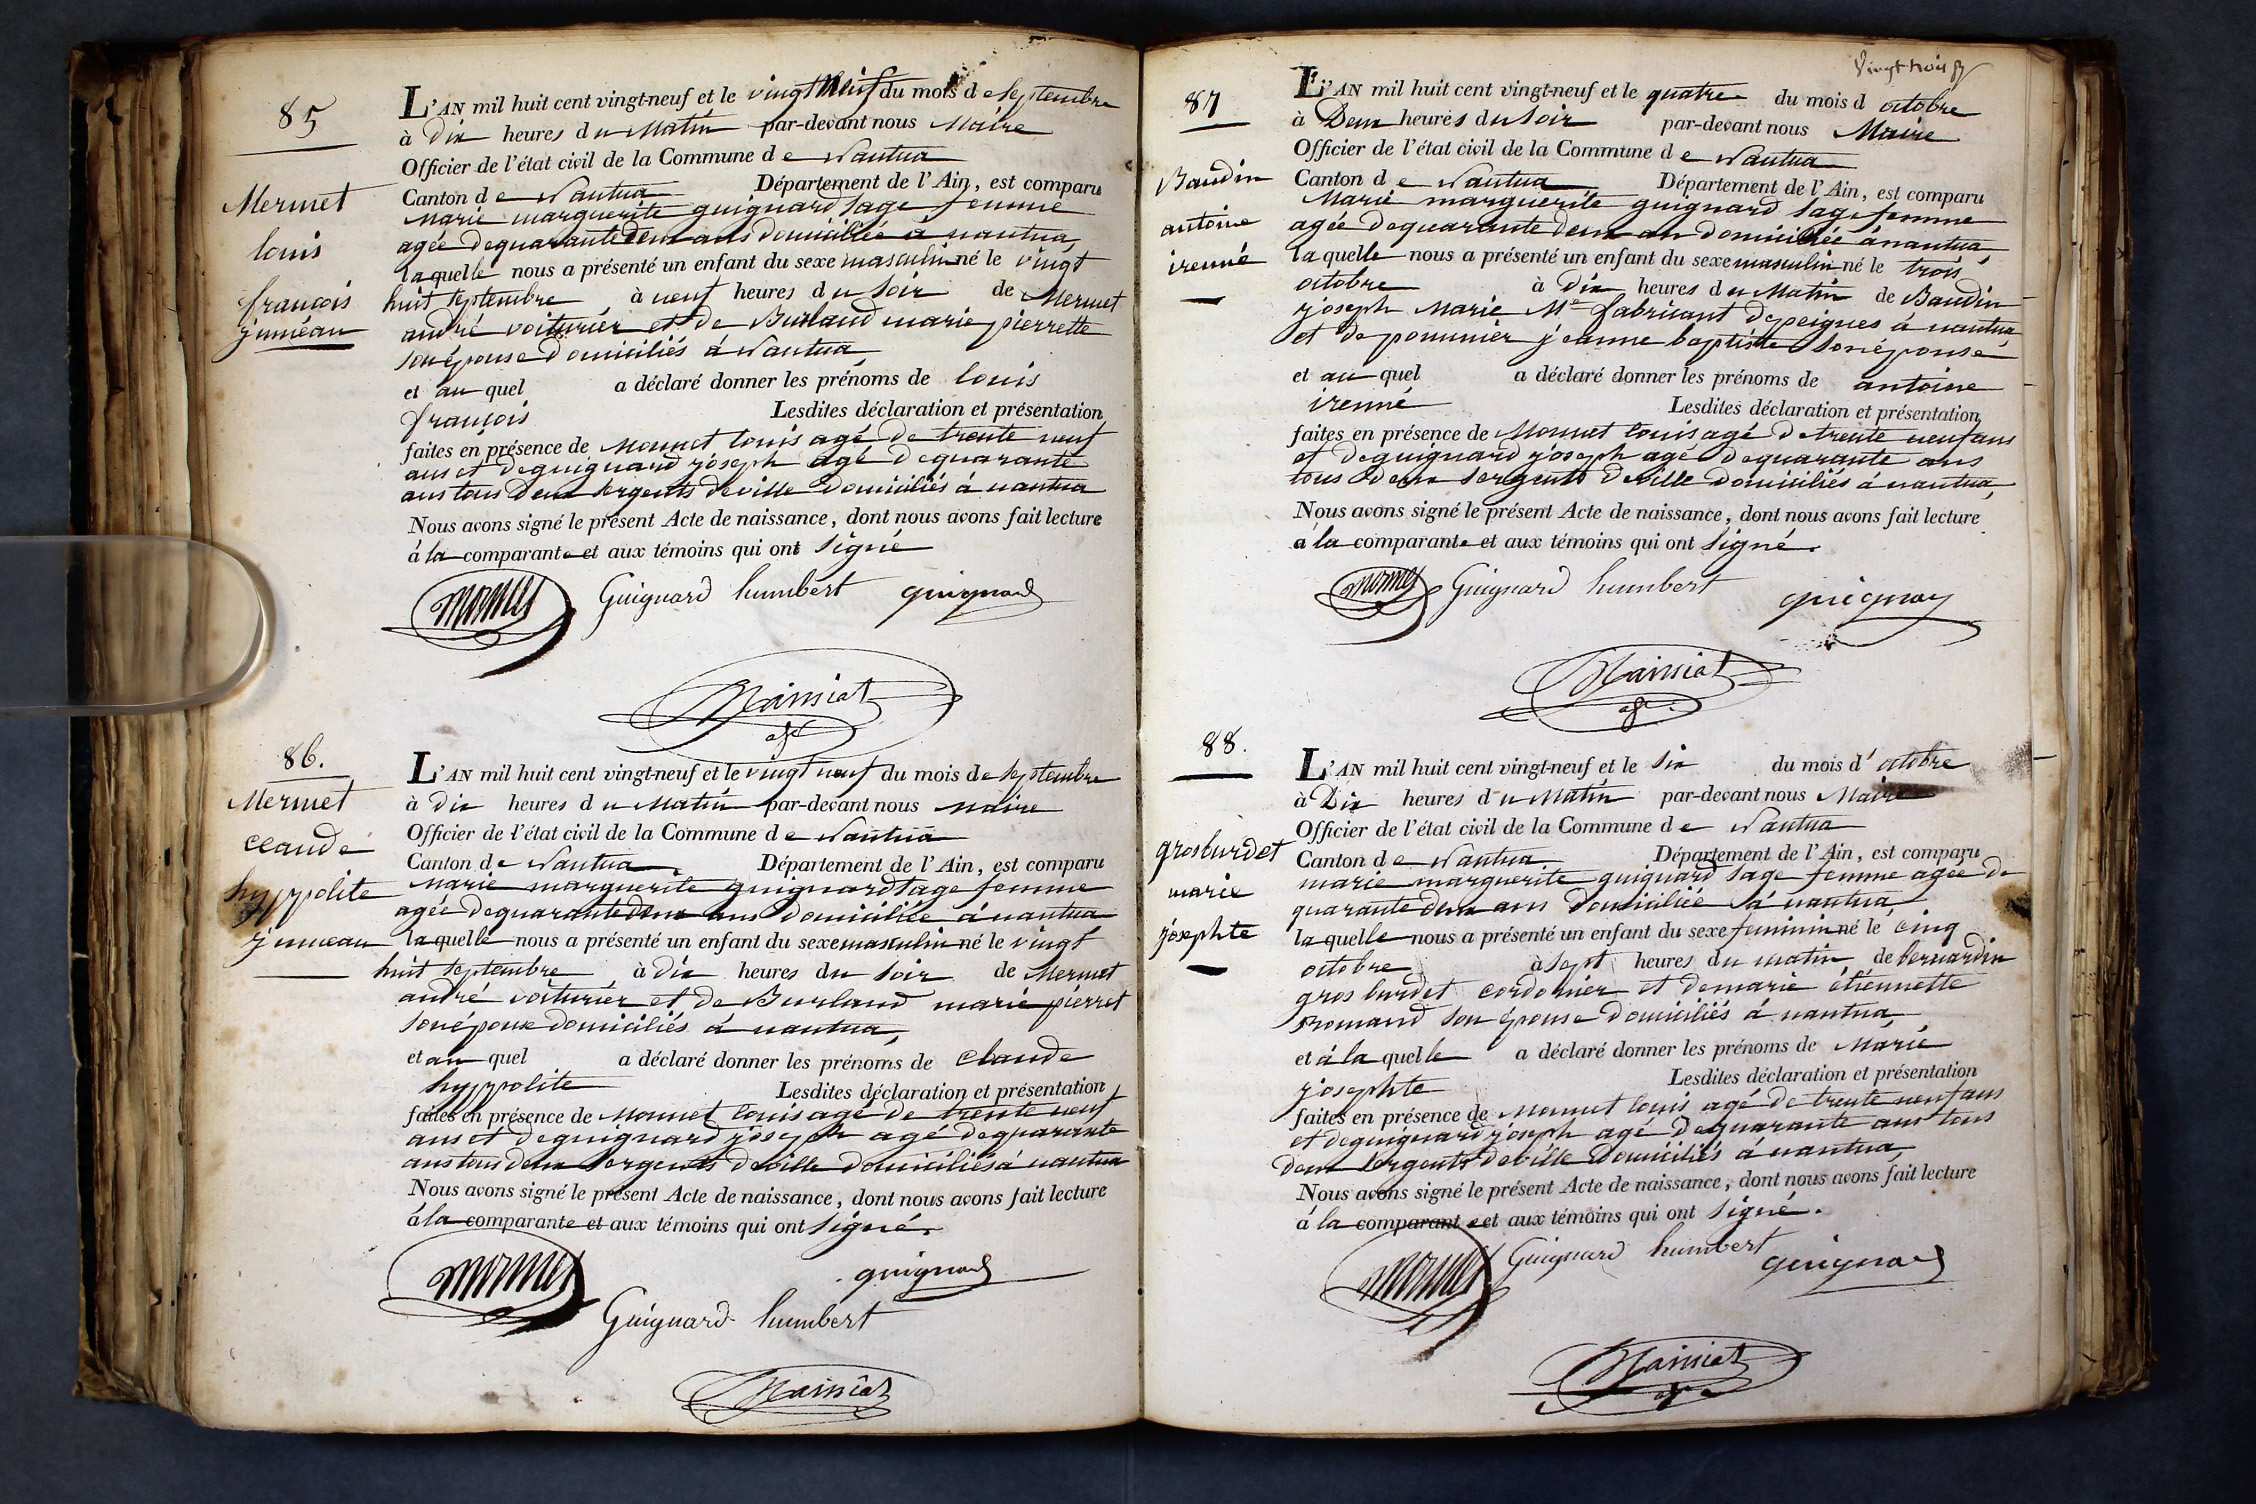 85
Mermet
louis
françois
jumeau
L'AN mil huit cent vingt-neuf et le vingt neuf du mois de septembre
à dix heures du Matin par-devant nous Maire
Officier de l'état civil de la Commune de Nantua
Canton de Nantua Département de l'Ain, est comparu
Marie marguerite guignard sage femme
agée de quarante deux ans domiciliée à nantua,
laquelle nous a présenté un enfant du sexe masculin né le vingt
huit septembre à neuf heures du soir de Mermet
andré voiturier et de Burland marie pierrette
son épouse domiciliés à Nantua
et au quel a déclaré donner les prénoms de louis
françois Lesdites déclaration et présentation
faites en présence de Monnet louis agé de trente neuf
ans et de guignard joseph agé de quarante
ans tous deux sergents de ville domiciliés à nantua
Nous avons signé le présent Acte de naissance, dont nous avons fait lecture
à la comparante et aux témoins qui ont signé
Monnet Guignard humbert guignard
86.
Mermet
claude
hyppolite
jumeau
L'AN mil huit cent vingt-neuf et le vingt neuf du mois de septembre
à dix heures du Matin par-devant nous Maire
Officier de l'état civil de la Commune de Nantua
Canton de Nantua Département de l'Ain, est comparu
Marie marguerite guignard sage femme
agée de quarante deux ans domiciliée à nantua
laquelle nous a présenté un enfant du sexe masculin né le vingt
huit septembre à dix heures du soir de Mermet
andré voiturier et de Burland marie pierret
son épouse domiciliés à nantua,
et au quel a déclaré donner les prénoms de claude
hyppolite Lesdites déclaration et présentation
faites en présence de Monnet louis agé de trente neuf
ans et de guignard joseph agé de quarante
ans tous deux sergents de ville domiciliés à nantua
Nous avons signé le présent Acte de naissance, dont nous avons fait lecture
à la comparante et aux témoins qui ont signé.
Monnet guignard
Guignard humbert
Vingt trois
87
Baudin
antoine
irenné
L'AN mil huit cent vingt-neuf et le quatre du mois d octobre
à Deux heures du soir par-devant nous Maire
Officier de l'état civil de la Commune de Nantua
Canton de Nantua Département de l'Ain, est comparu
Marie marguerite guignard sage femme
agée de quarante deux an domiciliée à nantua,
laquelle nous a présenté un enfant du sexe masculin né le trois
octobre à dix heures du Matin de Baudin
joseph Marie Md fabricant de peignes à nantua
et de pommier jeanne baptiste son épouse
et au quel a déclaré donner les prénoms de antoine
irenné Lesdites déclaration et présentation
faites en présence de Monnet louis agé de trente neuf ans
et de guignard joseph agé de quarante ans
tous deux sergents de ville domiciliés à nantua,
Nous avons signé le présent Acte de naissance, dont nous avons fait lecture
à la comparante et aux témoins qui ont signé.
Monnet Guignard humbert guignard
88.
grosburdet
marie
josephte
L'AN mil huit cent vingt-neuf et le six du mois d'octobre
à Dix heures du Matin par-devant nous Maire
Officier de l'état civil de la Commune de Nantua
Canton de Nantua Département de l'Ain, est comparu
marie marguerite guignard sage femme agée de
quarante deux ans domiciliée à nantua
laquelle nous a présenté un enfant du sexe feminin né le cinq
octobre à sept heures du matin de bernardin
gros burdet cordonier et de marie étiennette
Romand son épouse domiciliés à nantua
et à la quelle a déclaré donner les prénoms de Marie
josephte Lesdites déclaration et présentation
faites en présence de Monnet louis agé de trente neuf ans
et de guignard joseph agé de quarante ans tous
deux sergents de ville domiciliés à nantua,
Nous avons signé le présent Acte de naissance, dont nous avons fait lecture
à la comparante et aux témoins qui ont signé.
Monnet Guignard humbert guignard